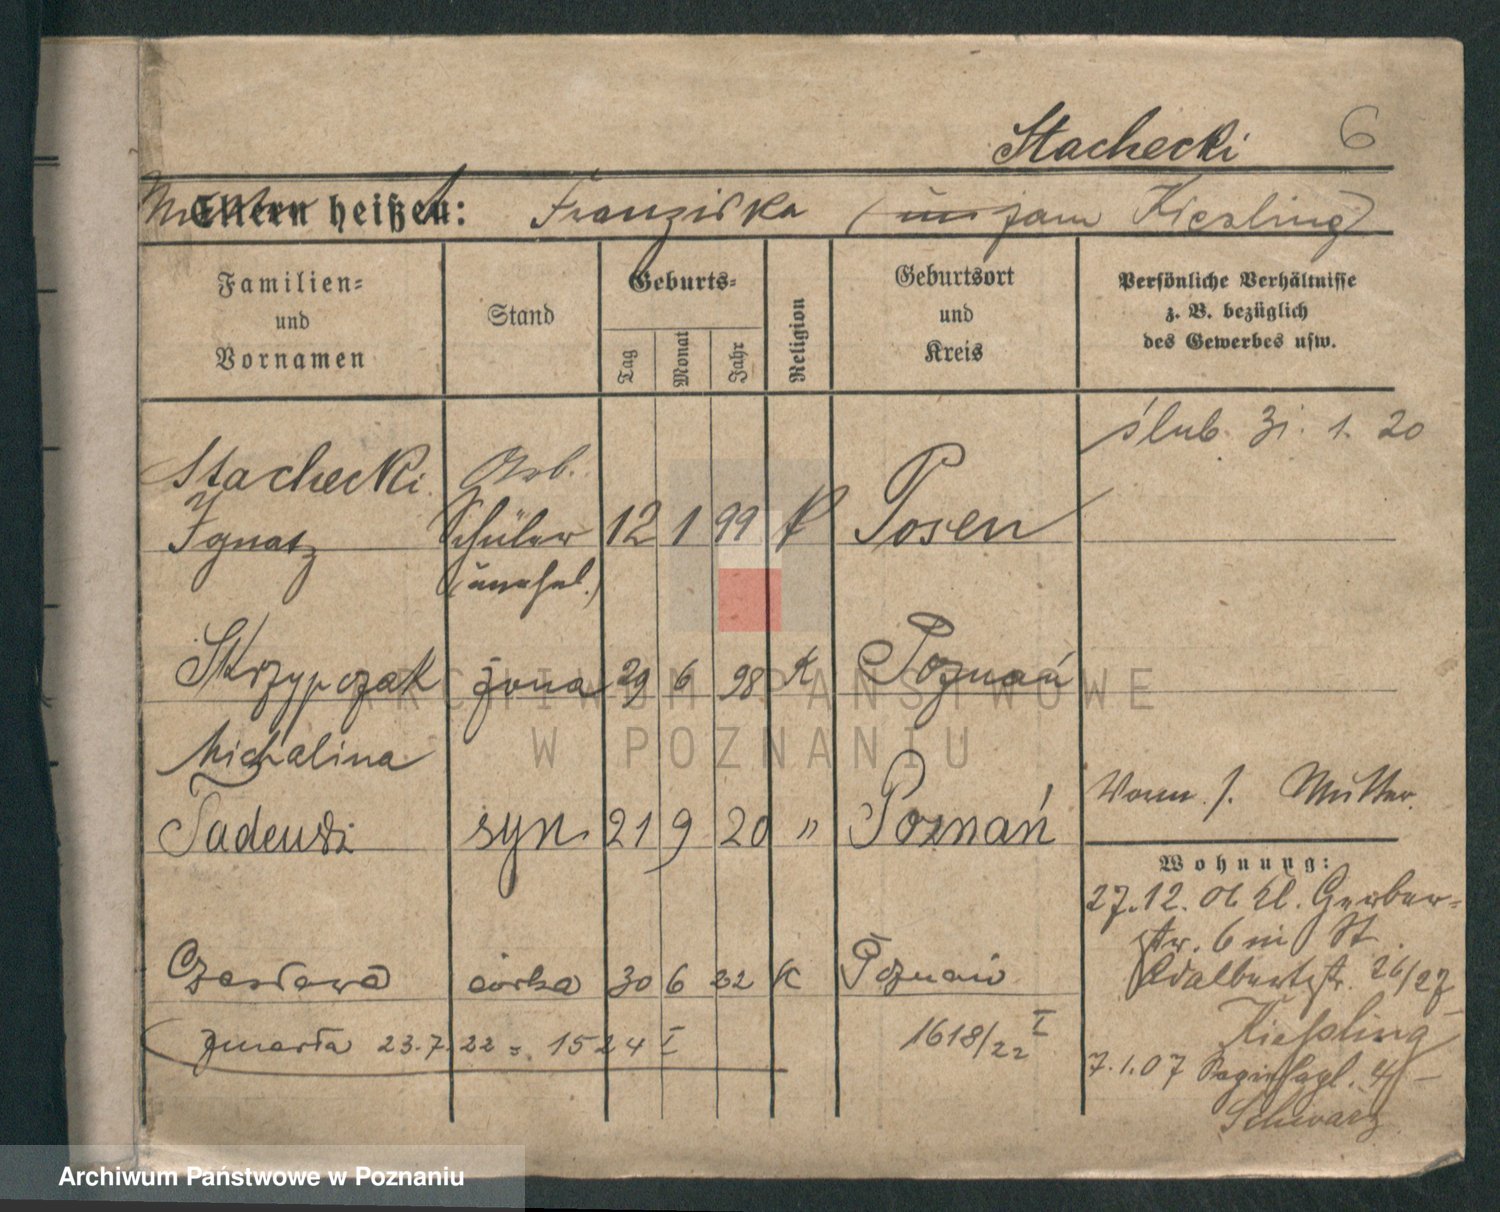 Stachecki 6
Eltern heißen: Franziska (jam Kiesling)
Familien-
und
Vornamen
Stand
Geburts-
Tag
Monat
Jahr
Religion
Geburtsort
und
Kreis
Persönliche Verhältnisse
z. B. bezüglich
des Gewerbes usw.
ślub. 31. 1. 20
Stachecki Arb.
Ignatz Schüler 12 1 99 K Posen
(unehel.)
Skrzypczak żona 29 6 98 K Poznań
Michalina
Vorm. s. Mutter.
Tadeusz syn 21 9 20 " Poznań
Wohnung:
27.12.06 Kl. Gerber-
str. 6 St.
Adalbertstr. 26/27
Kießling
Czesława córka 30 6 22 K Poznań
zmarła 23.7.22 = 1524 I
1618/22 I
7.1.07
Schwarz
ARCHIWUM PAŃSTWOWE
W POZNANIU
Archiwum Państwowe w Poznaniu